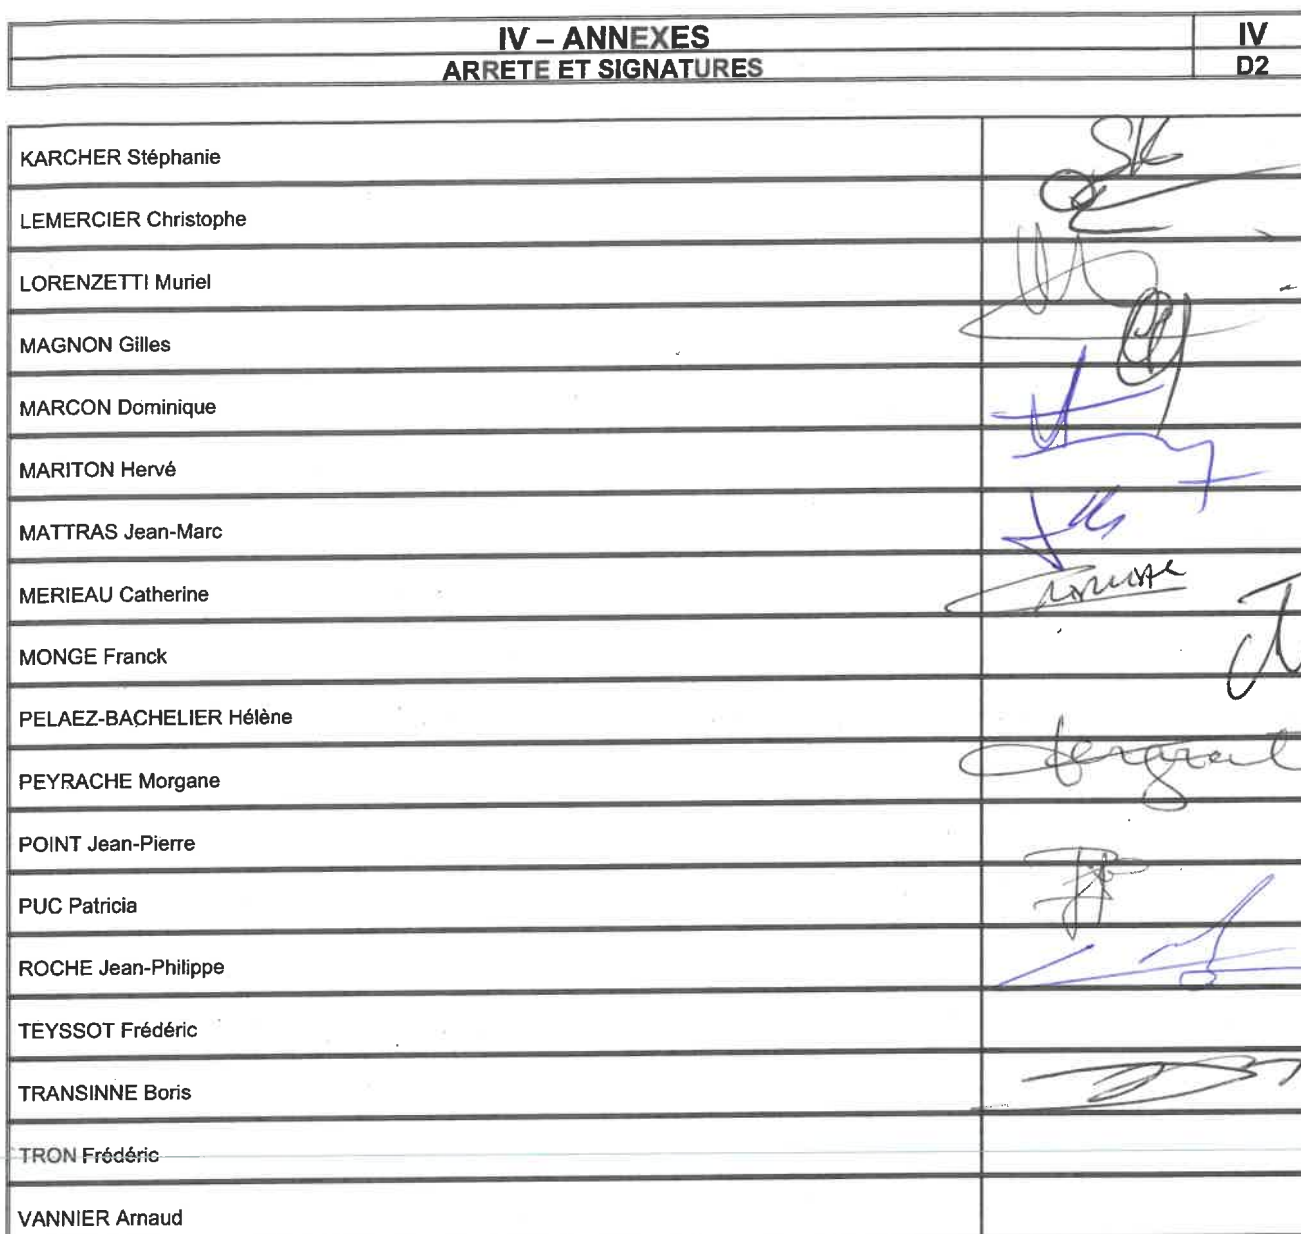 IV – ANNEXES
IV
ARRETE ET SIGNATURES
D2
KARCHER Stéphanie
SK
LEMERCIER Christophe
LORENZETTI Muriel
MAGNON Gilles
MARCON Dominique
MARITON Hervé
MATTRAS Jean-Marc
MERIEAU Catherine
MONGE Franck
PELAEZ-BACHELIER Hélène
PEYRACHE Morgane
POINT Jean-Pierre
PUC Patricia
ROCHE Jean-Philippe
TEYSSOT Frédéric
TRANSINNE Boris
TRON Frédéric
VANNIER Arnaud